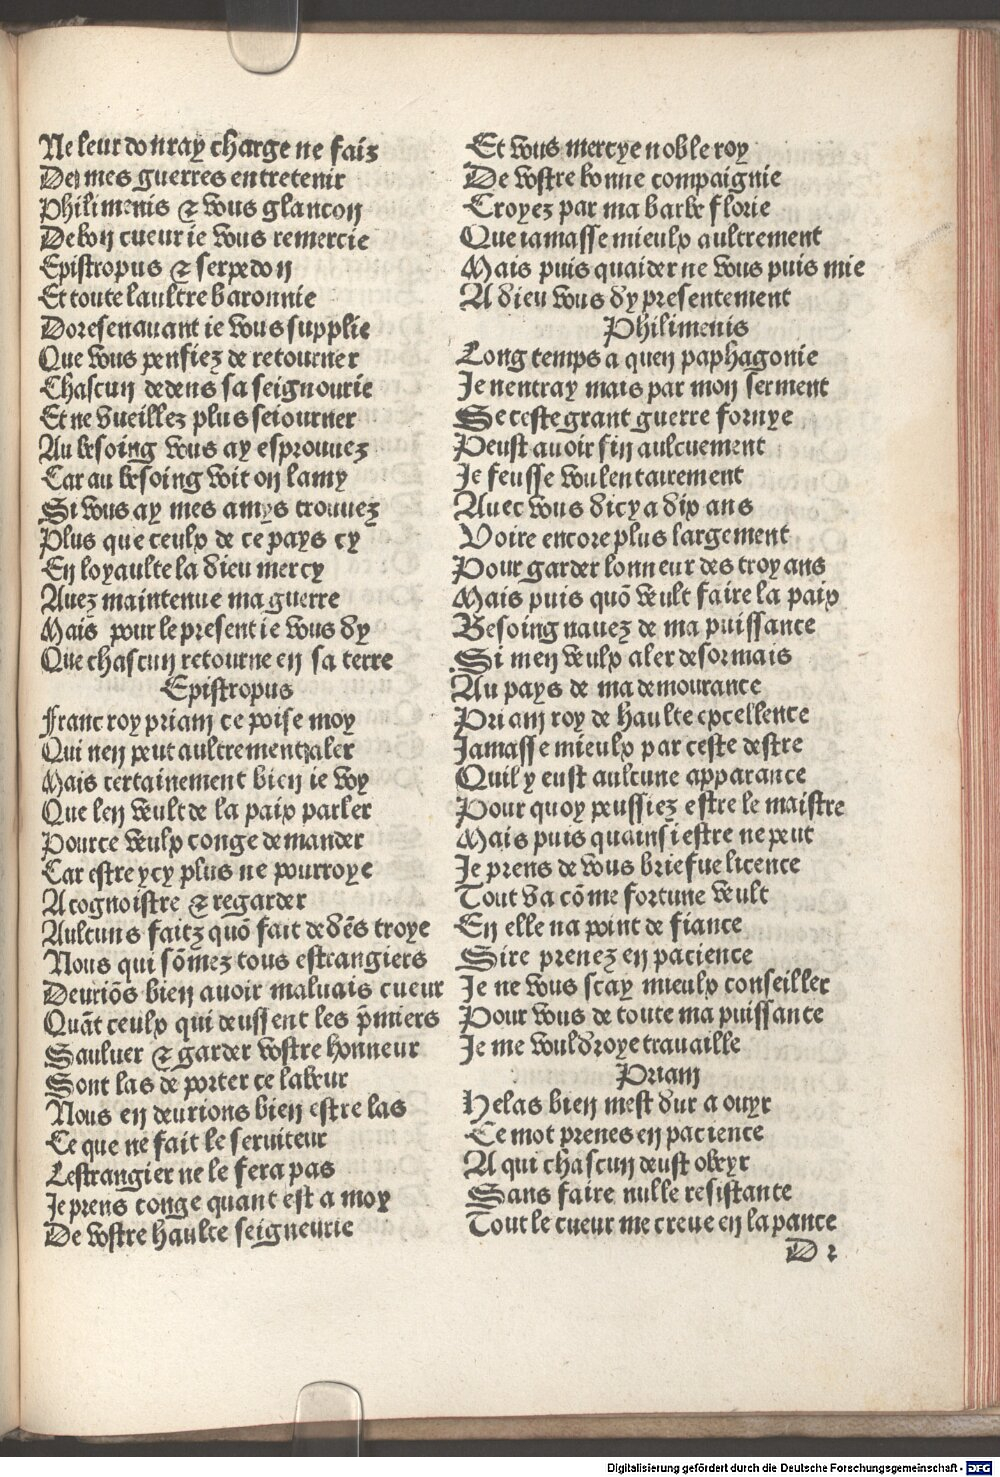 Ne leur donray charge ne faiz
De mes guerres entretenir
Philimenis & vous glancon
De bon cueur ie vous remercie
Epistropus & serpedon
Et toute laultre baronnie
Doresenauant ie vous supplie
Que vous penfiez de retourner
Chascun dedens sa seignourie
Et ne vueillez plus seiourner
Au besoing vous ay esprouuez
Car au besoing voit on lamy
Si vous ay mes amys trouuez
Plus que ceulx de ce pays cy
En loyaulte la dieu mercy
Auez maintenue ma guerre
Mais pour le present ie vous dy
Que chascun retourne en sa terre
Epistropus
Franc roy priam ce poise moy
Qui nen peut aultrement aler
Mais certainement bien ie voy
Que len veult de la paix parler
Pource veulx conge demander
Car estre ycy plus ne pourroye
A cognoistre & regarder
Aulcuns faitz quõ fait de dẽs troye
Nous qui sõmez tous estrangiers
Deuriõs bien auoir maluais cueur
Quãt ceulx qui deussent les p̃miers
Sauluer & garder vostre honneur
Sont las de porter ce labeur
Nous en deurions bien estre las
Ce que ne fait le seruiteur
Lestrangier ne le fera pas
Je prens conge quant est a moy
De vostre haulte seigneurie
Et vous mercye noble roy
De vostre bonne compaignie
Croyez par ma barbe florie
Que iamasse mieulx aultrement
Mais puis quaider ne vous puis mie
A dieu vous dy presentement
Philimenis
Long temps a quen paphagonie
Je nentray mais par mon serment
Se ceste grant guerre fornye
Peust auoir fin aulcuement
Je feusse voulentairement
Auec vous dicy a dix ans
Voire encore plus largement
Pour garder lonneur des troyans
Mais puis quõ veult faire la paix
Besoing nauez de ma puissance
Si men veulx aler desormais
Au pays de ma demourance
Priam roy de haulte excellence
Jamasse mieulx par ceste destre
Quil y eust aulcune apparance
Pour quoy peussiez estre le maistre
Mais puis quainsi estre ne peut
Je prens de vous briefue licence
Tout va cõme fortune veult
En elle na point de fiance
Sire prenez en pacience
Je ne vous scay mieulx conseiller
Pour vous de toute ma puissance
Je me vouldroye trauaille
Priam
Helas bien mest dur a ouyr
Ce mot prenes en pacience
A qui chascun deust obeyr
Sans faire nulle resistance
Tout le cueur me creue en la pance
D 2
Digitalisierung gefördert durch die Deutsche Forschungsgemeinschaft - DFG